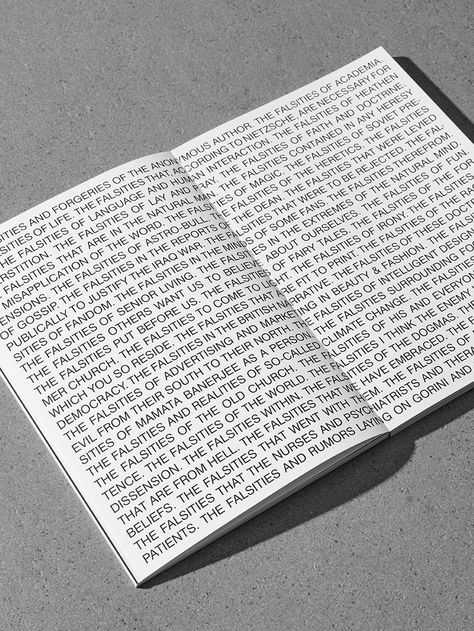 SITIES AND FORGERIES OF THE ANONYMOUS AUTHOR. THE FALSITIES OF ACADEMIA
SITIES OF LIFE. THE FALSITIES THAT ACCORDING TO NIETZSCHE, ARE NECESSARY FOR
THE FALSITIES OF LANGUAGE AND HUMAN INTERACTION. THE FALSITIES OF HEATHEN
RSTITION. THE FALSITIES OF LAY AND THE FALSITIES OF FAITH AND DOCTRINE.
FALSITIES THAT ARE IN THE NATURAL MAN. THE FALSITIES CONTAINED IN ANY HERESY
MISAPPLICATION OF THE WORD. THE FALSITIES OF MAGIC. THE FALSITIES OF SOVIET PRE-
ENSIONS. THE FALSITIES OF ASTRO-BULL OF THE HERETICS. THE FALSITIES
OF GOSSIP. THE FALSITIES IN THE REPORTS OF THE DEAN. THE FALSITIES THAT WERE LEVIED
PUBLICALLY TO JUSTIFY THE IRAQ WAR. THE FALSITIES THAT WERE TO BE REJECTED. THE FAL-
SITIES OF FANDOM. THE FALSITIES IN THE MINDS OF SOME FANS. THE FALSITIES THEREFROM.
THE FALSITIES OF SENIOR LIVING. THE FALSITIES IN THE EXTREMES OF THE NATURAL MIND.
THE FALSITIES OTHERS WANT US TO BELIEVE ABOUT OURSELVES. THE FALSITIES OF FUN.
THE FALSITIES PUT BEFORE US. THE FALSITIES FAIRY TALES. THE FALSITIES OF IRONY. THE FALSITIES
MER CHURCH. THE FALSITIES TO COME TO LIGHT. THE FALSITIES OF THE
WHICH YOU SO RESIDE. THE FALSITIES THAT ARE FIT TO PRINT. THE FALSITIES OF
DEMOCRACY. THE FALSITIES IN THE BRITISH NARRATIVE. THE FALSITIES OF THESE
THE FALSITIES OF ADVERTISING AND MARKETING IN BEAUTY & FASHION. THE
EVIL FROM THEIR SOUTH TO THEIR NORTH. THE FALSITIES OF INTELLIGENT DESIGN
SITIES OF MAMATA BANERJEE AS A PERSON. THE FALSITIES SURROUNDING
THE FALSITIES AND REALITIES OF SO-CALLED CLIMATE CHANGE. THE FALSITIES
THE FALSITIES OF THE OLD CHURCH. THE FALSITIES OF HIS AND
TENCE. THE FALSITIES OF THE WORLD. THE FALSITIES I THINK THE ENEMY
DISSENSION. THE FALSITIES WITHIN. THE FALSITIES OF THE DOGMAS.
THAT ARE FROM HELL. THE FALSITIES THAT HAVE EMBRACED. THE
BELIEFS. THE FALSITIES THAT WENT WITH THE FALSITIES OF
THE FALSITIES THAT THE NURSES AND PSYCHIATRISTS AND
PATIENTS. THE FALSITIES AND RUMORS LAYING ON GORINI AND